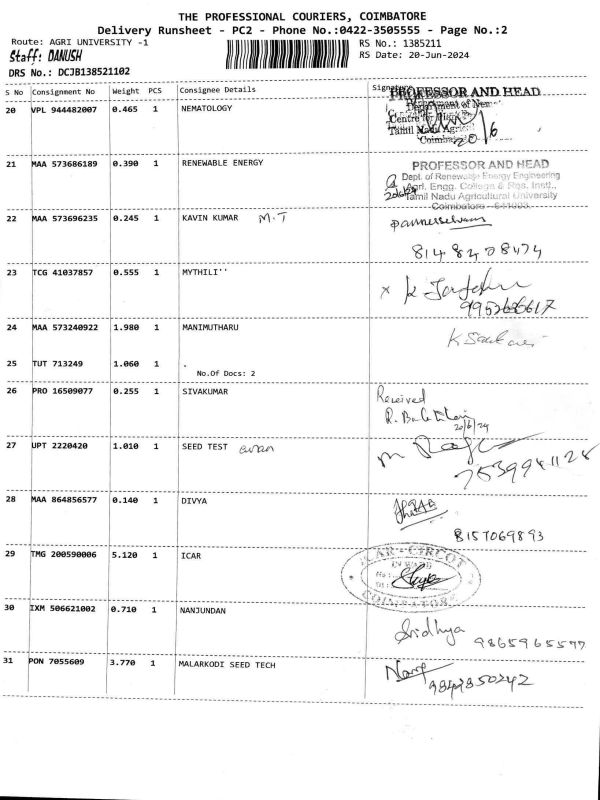 THE PROFESSIONAL COURIERS, COIMBATORE
Delivery Runsheet - PC2 - Phone No.:0422-3505555 - Page No.:2
Route: AGRI UNIVERSITY -1
RS No.: 1385211
Staff: DANUSH
RS Date: 20-Jun-2024
DRS No.: DCJB138521102
S No Consignment No Weight PCS Consignee Details Signature
20 VPL 944482007 0.465 1 NEMATOLOGY
PROFESSOR AND HEAD
Department of Nem
Centre for Plant
Tamil Nadu Agric
Coimbat
20/6
21 MAA 573686189 0.390 1 RENEWABLE ENERGY
PROFESSOR AND HEAD
Dept. of Renewable Energy Engineering
Agrl. Engg. College & Res. Instt.,
Tamil Nadu Agricultural University
Coimbatore - 641003.
22 MAA 573696235 0.245 1 KAVIN KUMAR M.T
Pannerselvam
8148478474
23 TCG 41037857 0.555 1 MYTHILI''
x K
24 MAA 573240922 1.980 1 MANIMUTHARU
K
25 TUT 713249 1.060 1 .
No.Of Docs: 2
26 PRO 16509077 0.255 1 SIVAKUMAR
Received
R.
20/6/24
27 UPT 2220420 1.010 1 SEED TEST
28 MAA 864856577 0.140 1 DIVYA
8157069893
29 TMG 200590006 5.120 1 ICAR
ICAR - CIRCOT
INWARD
No.:
Dt.:
COIMBATORE
30 IXM 506621002 0.710 1 NANJUNDAN
Sridhya
9865965577
31 PON 7055609 3.770 1 MALARKODI SEED TECH
9842850242